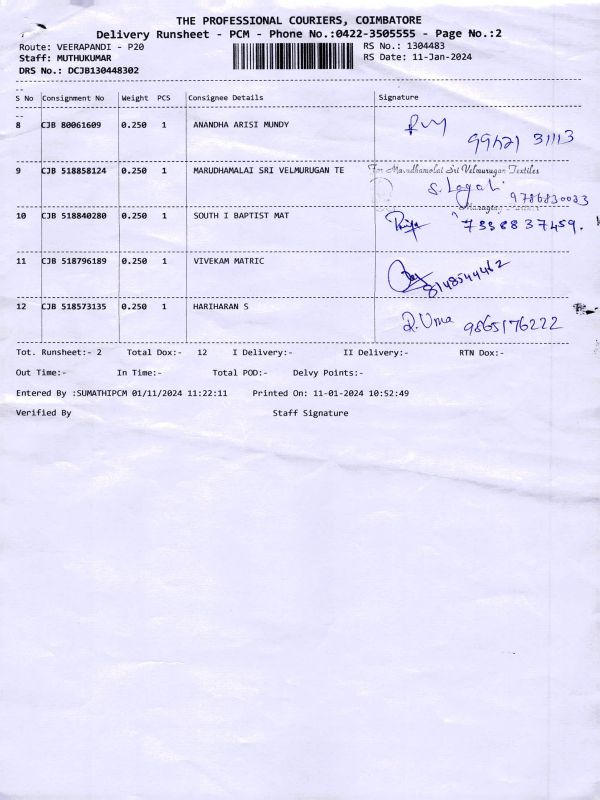 THE PROFESSIONAL COURIERS, COIMBATORE
Delivery Runsheet - PCM - Phone No.:0422-3505555 - Page No.:2
Route: VEERAPANDI - P20 RS No.: 1304483
Staff: MUTHUKUMAR RS Date: 11-Jan-2024
DRS No.: DCJB130448302
S No Consignment No Weight PCS Consignee Details Signature
8 CJB 80061609 0.250 1 ANANDHA ARISI MUNDY
9 CJB 518858124 0.250 1 MARUDHAMALAI SRI VELMURUGAN TE For Marudhamalai Sri Velmurugan Textiles
9786830033
10 CJB 518840280 0.250 1 SOUTH I BAPTIST MAT 7338837459.
11 CJB 518796189 0.250 1 VIVEKAM MATRIC 8148544462
12 CJB 518573135 0.250 1 HARIHARAN S R.Uma 9865176222
Tot. Runsheet:- 2 Total Dox:- 12 I Delivery:- II Delivery:- RTN Dox:-
Out Time:- In Time:- Total POD:- Delvy Points:-
Entered By :SUMATHIPCM 01/11/2024 11:22:11 Printed On: 11-01-2024 10:52:49
Verified By Staff Signature